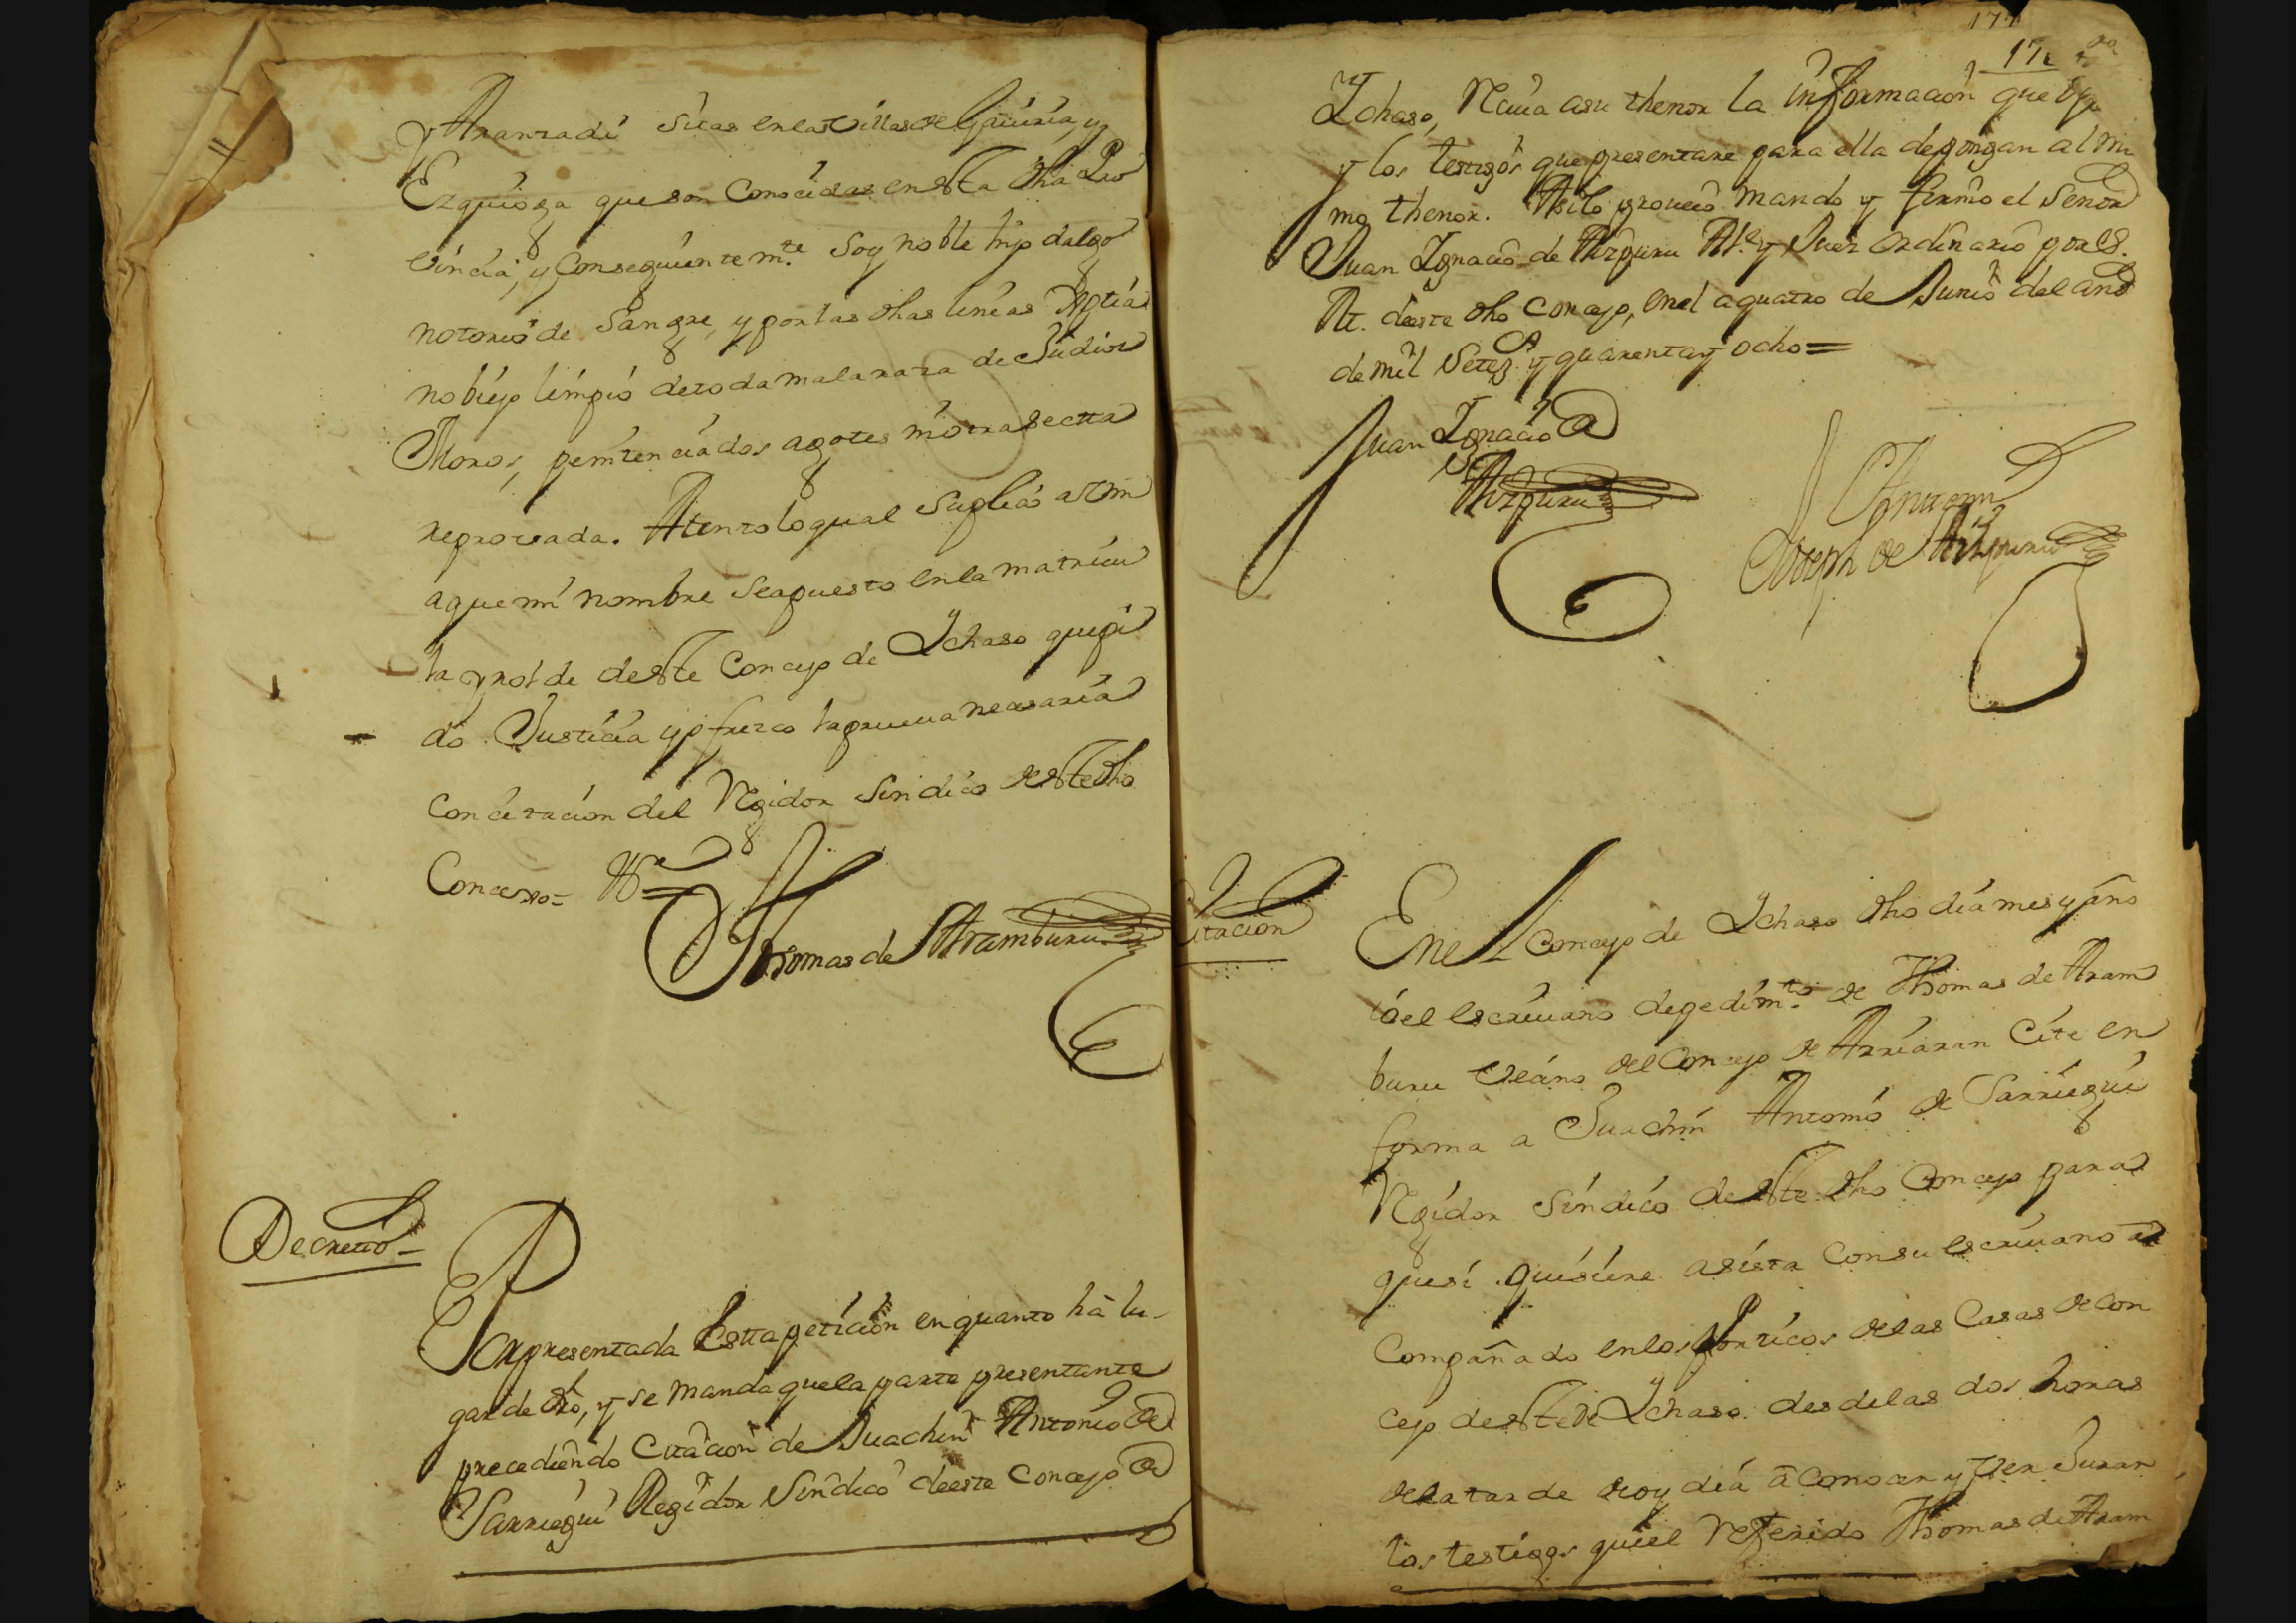 y Aranzadi sitas en las Villas de Gaviria, y
Ezquioga que son Conocidas en esta dha Pro
vincia, y Consequientemte. soy noble hijo dalgo
notorio de Sangre, y por las dhas lineas Xptia
no biejo limpio de toda mala raza de Judios
Moros, penitenciados agotes ni otra Sectta
reprovada. Atento lo qual Suplico a Vm
a que mi nombre sea puesto en la matricu
la y rolde deste Concejo de Ichaso que pi
do Justicia y ofrezco la prueua necesaria
con citacion del Regidor Sindico de este dho
Concejo=
Thomas de Aramburu
Decretto
Por presentada Estta peticion en quanto hà lu-
gar de dro, y se manda que la parte presentante
precediendo Citacion de Juachin Antonio de
Sarriegui Regidor Sindico deeste Concejo de
171
Ichaso, Reciua a su thenor la informacion que
y los testigos que presentare para ella depongan al mis
mo thenor. Asilo proueio mando y firmo el Senor
Juan Ignacio de Aizpuru Alce. y Juez ordinario por S.
M. deeste dho Concejo, en el a quatro de Junio del año
de mil Setez. y quarenta y ocho=
Juan Ignacio de
Aizpuru
Antemi
Joseph de Aizpuru
Citacion
En el Concejo de Ichaso dho dia mes y año
io el escriuano de pedimto. de Thomas de Aram
buru vecino del Concejo de Arriaran Cite en
forma a Juachin Antonio de Sarriegui
Regidor Sindico de este dho Concejo para
que si quisiere asista con su escriuano a
Compañado en los Porticos de las Casas de Con
cejo de este de Ichaso desde las dos horas
de la tarde de oy dia â Conocer y Ver Jurar
los testigos que el Referido Thomas de Aram